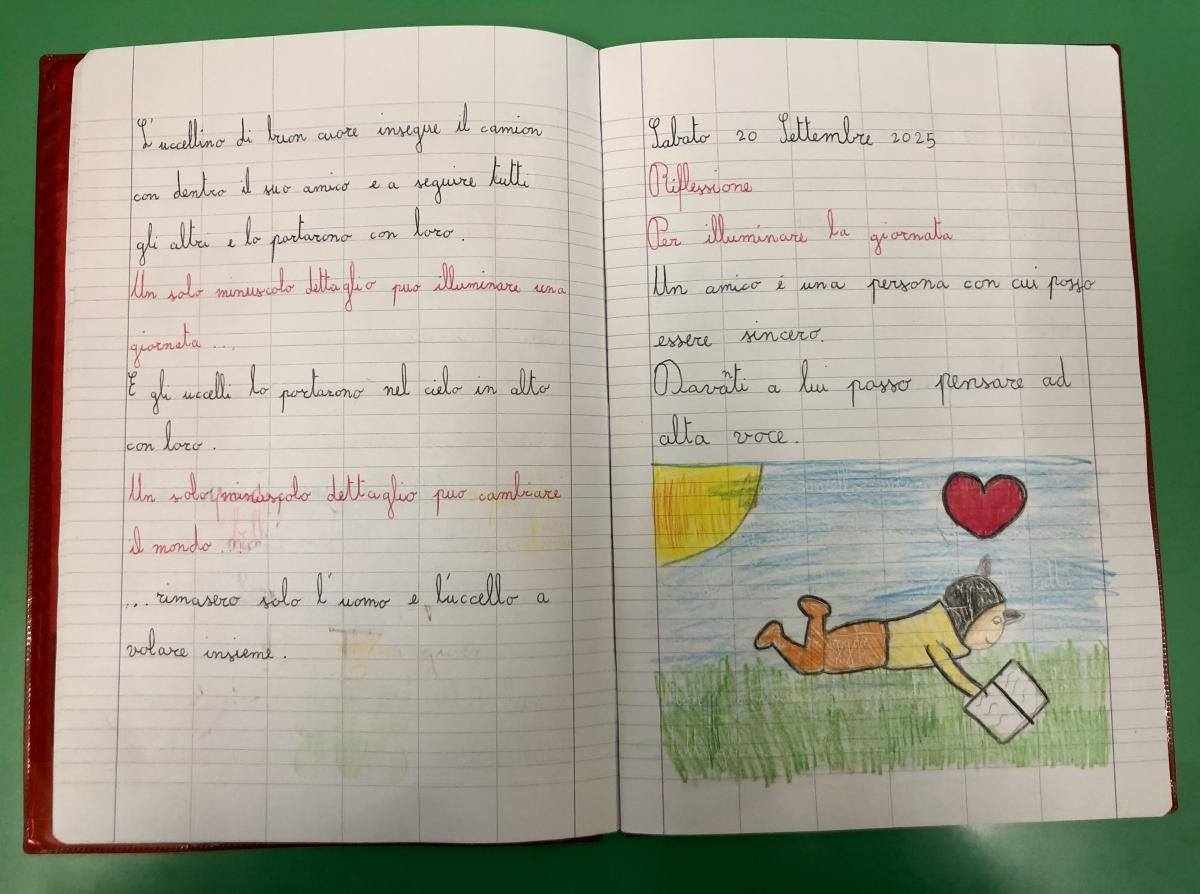 L'uccellino di buon cuore insegue il camion
con dentro il suo amico e a seguire tutti
gli altri e lo portarono con loro.
Un solo minuscolo dettaglio può illuminare una
giornata ...
E gli uccelli lo portarono nel cielo in alto
con loro.
Un solo minuscolo dettaglio può cambiare
il mondo ...
...rimasero solo l'uomo e l'uccello a
volare insieme.
Sabato 20 Settembre 2025
Riflessione
Per illuminare la giornata
Un amico é una persona con cui posso
essere sincero.
Davanti a lui posso pensare ad
alta voce.